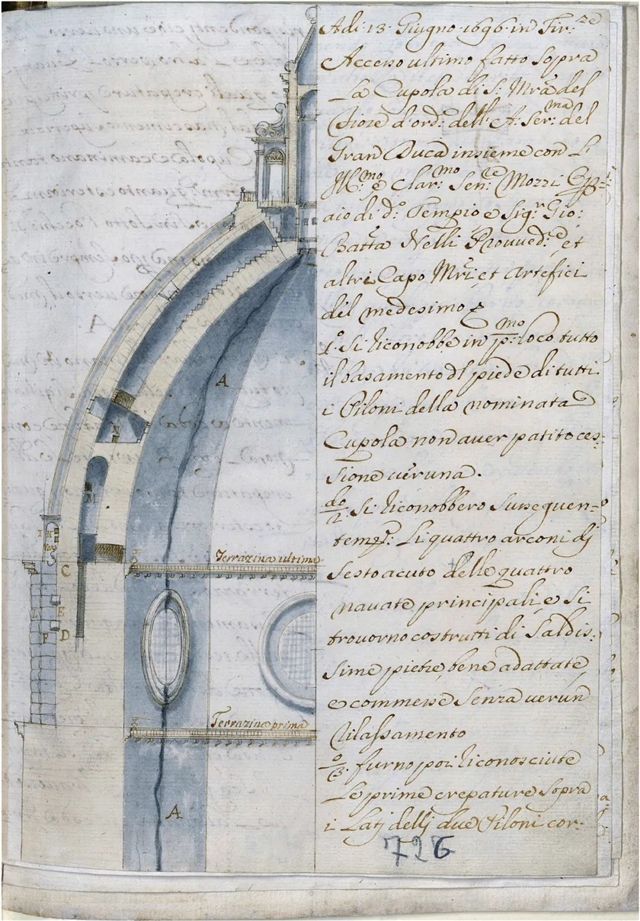 Adi: 13: Giugno: 1696: in Fir:ze
Acceso ultimo fatto sopra
La Cupola di S: Mra del
Fiore d'ord: dell'A: Ser:ma del
Gran Duca insieme con L'
Ill:mo e Clar:mo Sen:re Mozzi Op:
aio di d:o Tempio e Sig:r Gio:
Batta Nelli Provved:e et
altri Capo Mri et Artefici
del medesimo
1:o Si riconobbe in p:mo loco tutto
il basamento dl piede di tutti
i Piloni della nominata
Cupola non aver patito ces=
sione veruna.
2:do Si riconobbero susseguen=
tem: Li quattro arconi di
sesto acuto delle quattro
navate principali e si
trovorno costrutti di saldis:
sime pietre bene adattate
e commesse senza verun
rilassamento
3:o furno poi riconosciute
Le prime crepature sopra
i Latj dellj due Piloni cor=
726
A
Terrazina ultima
Terrazina prima
A
M
C
E
F D